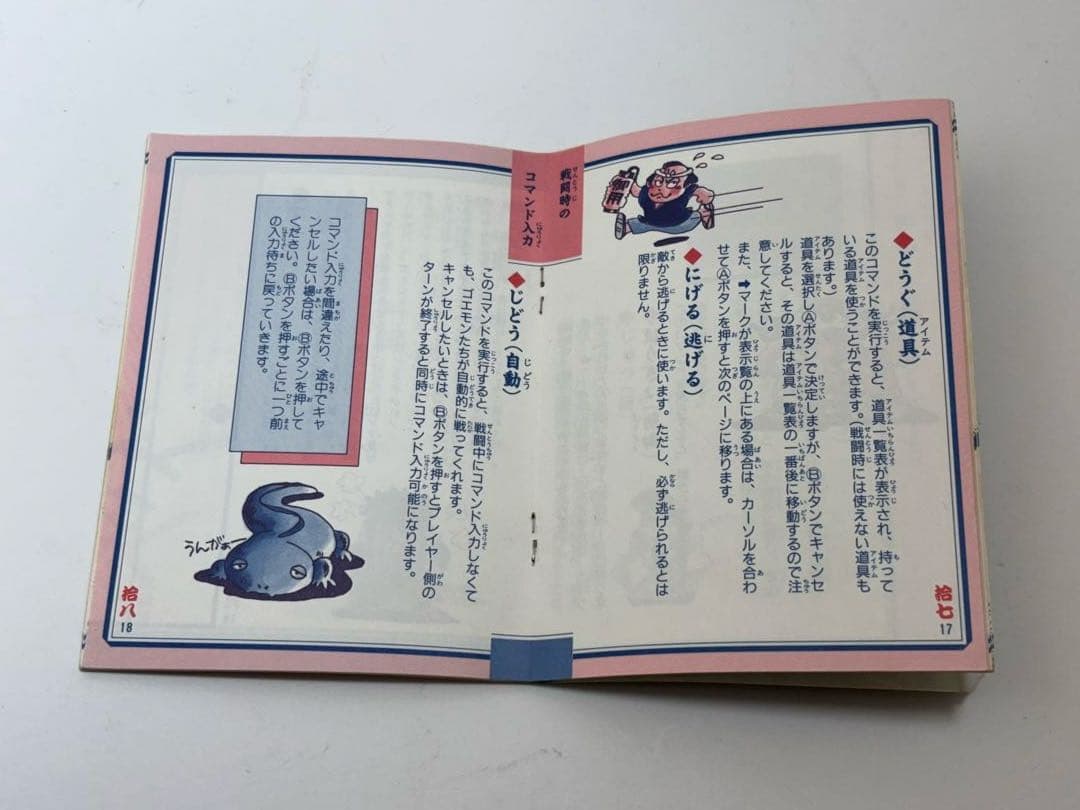 戦闘時の
コマンド入力
御用
◆どうぐ(道具)
このコマンドを実行すると、道具一覧表が表示され、持って
いる道具を使うことができます。(戦闘時には使えない道具も
あります。)
道具を選択しⒶボタンで決定しますが、Ⓑボタンでキャンセ
ルすると、その道具は道具一覧表の一番後に移動するので注
意してください。
また、➡マークが表示覧の上にある場合は、カーソルを合わ
せてⒶボタンを押すと次のページに移ります。
◆にげる(逃げる)
敵から逃げるときに使います。ただし、必ず逃げられるとは
限りません。
拾七
17
◆じどう(自動)
このコマンドを実行すると、戦闘中にコマンド入力しなくて
も、ゴエモンたちが自動的に戦ってくれます。
キャンセルしたいときは、Ⓑボタンを押すとプレイヤー側の
ターンが終了すると同時にコマンド入力可能になります。
コマンド入力を間違えたり、途中でキャ
ンセルしたい場合は、Ⓑボタンを押して
ください。Ⓑボタンを押すごとに一つ前
の入力待ちに戻っていきます。
うんがぁー
拾八
18